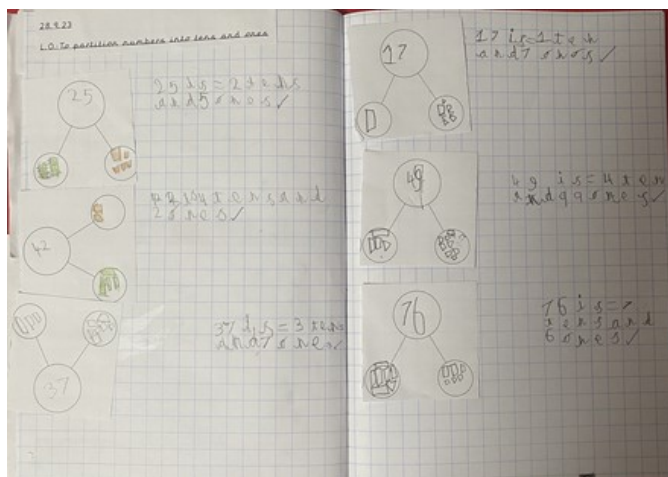 28.9.23
L.O: To partition numbers into tens and ones
25
25 is = 2 tens
and 5 ones ✓
42
42 is 4 tens and
2 ones ✓
37
37 is = 3 tens
and 7 ones ✓
17
17 is = 1 ten
and 7 ones ✓
49
49 is = 4 ten
and 9 9 ones ✓
76
76 is = 7
tens and
6 ones ✓